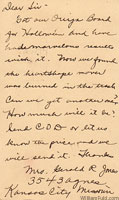 Dear Sir -
Got our Ouija Board
for Hallowe'en and have
had marvelous results
with it. Now we found
the heartshape mover
was burned in the trash
Can we get another one?
How much will it be?
Send C O D or let us
know the price, and we
will send it. Thanks
Mrs. Gerald R. Jones
3543 Agnes
Kansas City Missouri
WilliamFuld.com